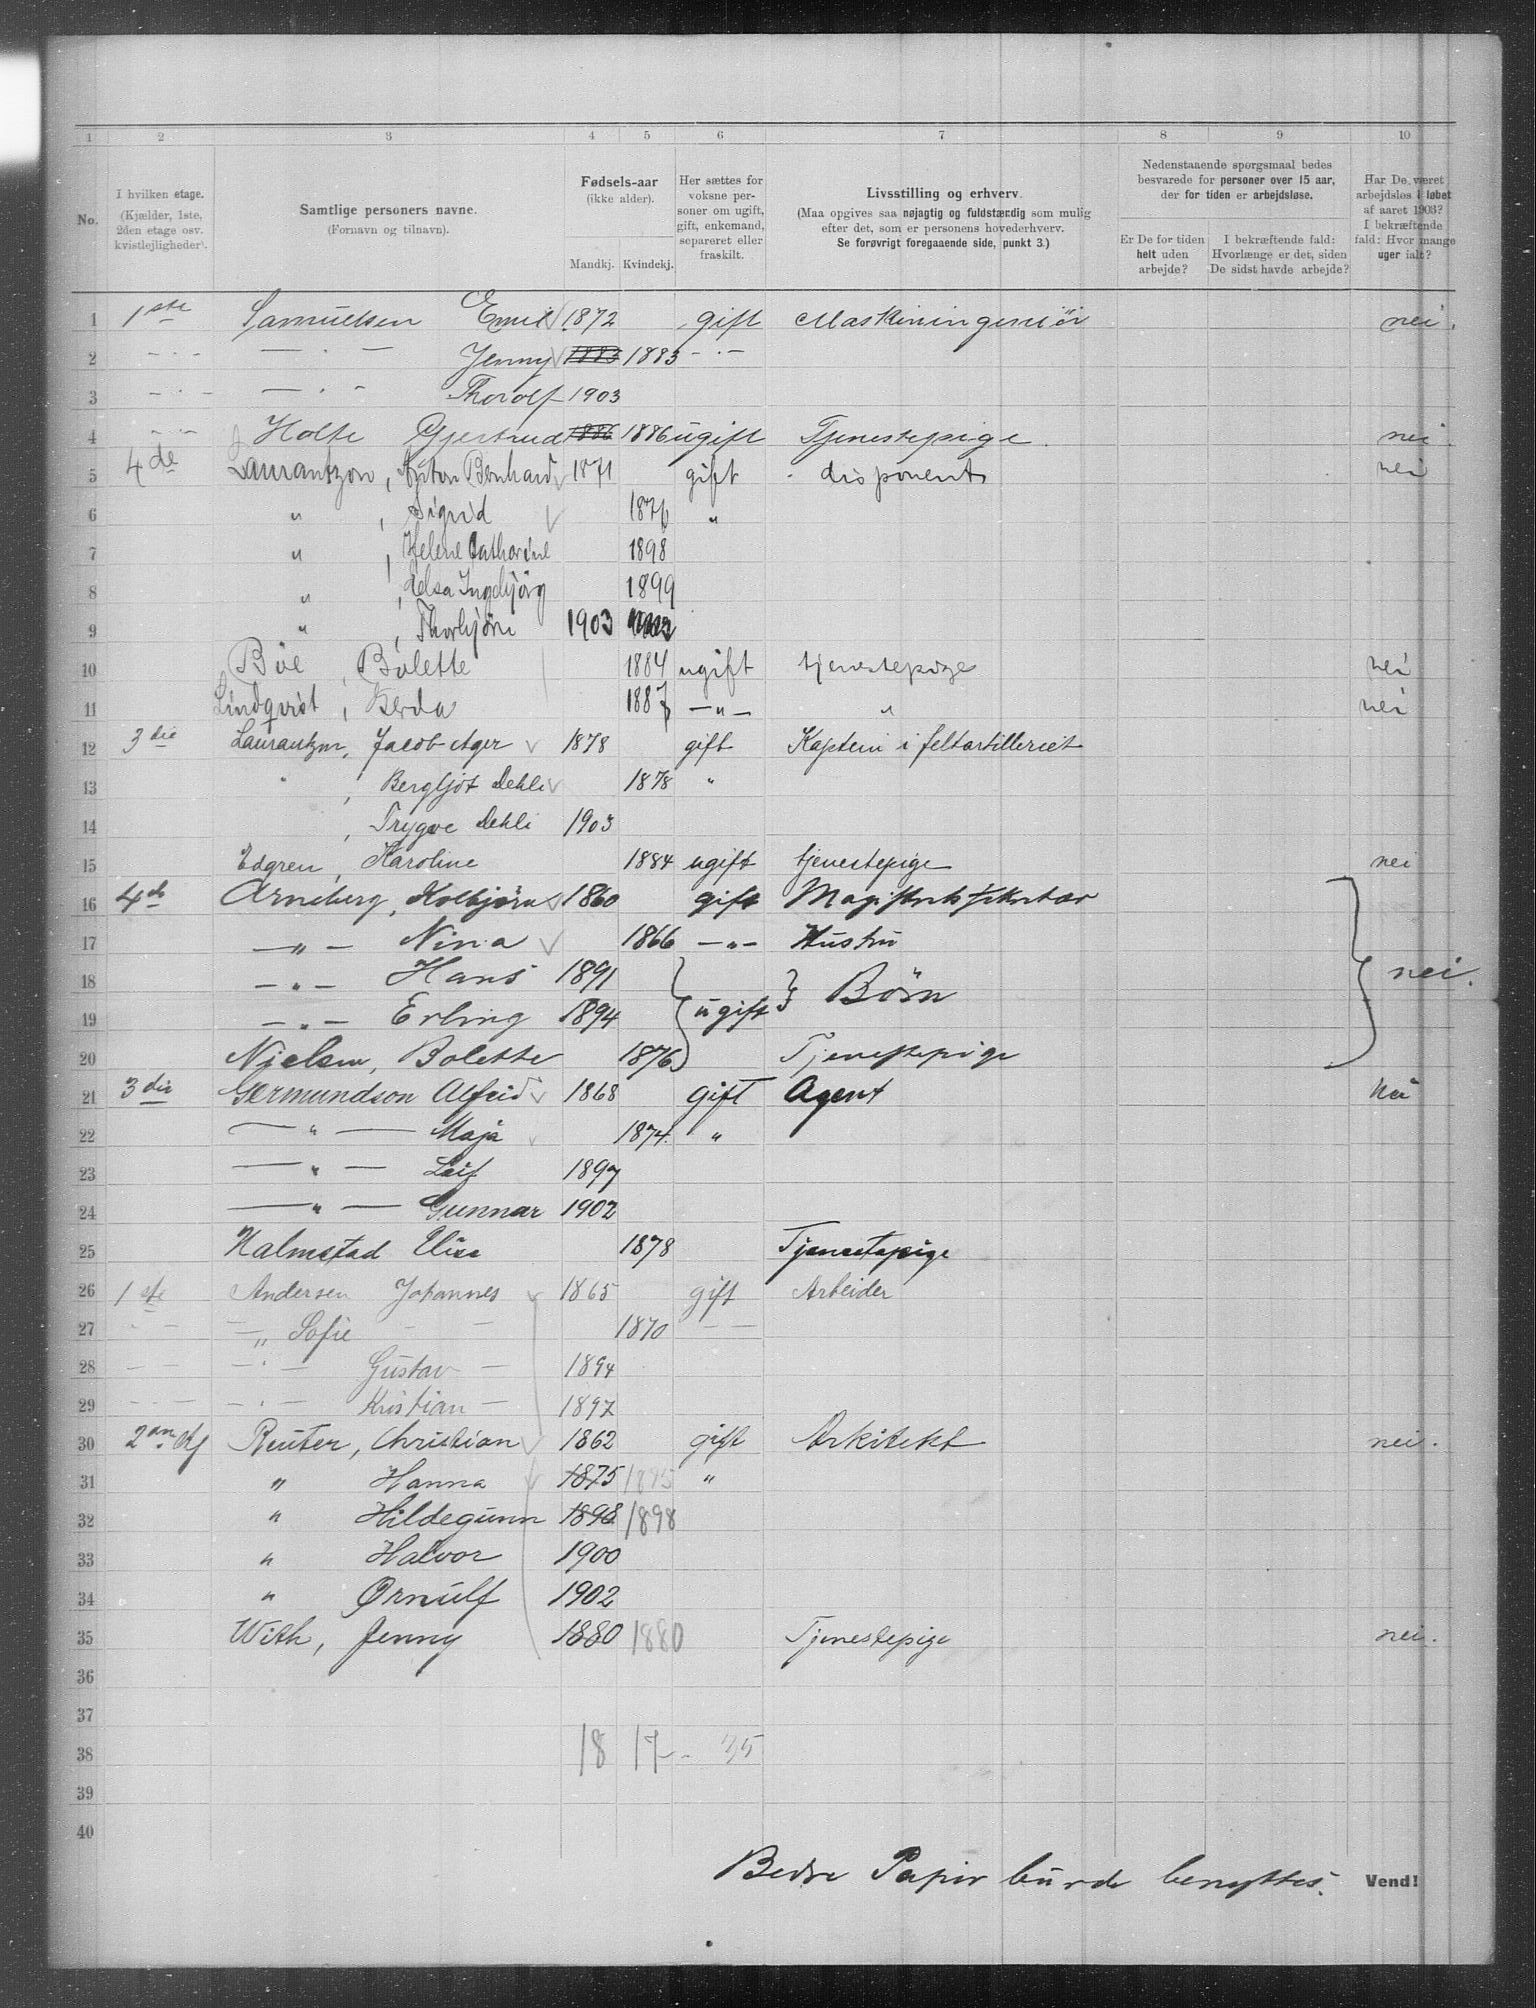 1 2 3 4 5 6 7 8 9 10
No.
I hvilken etage.
(Kjælder, 1ste,
2den etage osv.
kvistlejligheder).
Samtlige personers navne.
(Fornavn og tilnavn).
Fødsels-aar
(ikke alder).
Mandkj. Kvindekj.
Her sættes for
voksne per-
soner om ugift,
gift, enkemand,
separeret eller
fraskilt.
Livsstilling og erhverv.
(Maa opgives saa nøjagtig og fuldstændig som mulig
efter det, som er personens hovederhverv.
Se forøvrigt foregaaende side, punkt 3.)
Nedenstaaende spørgsmaal bedes
besvarede for personer over 15 aar,
der for tiden er arbejdsløse.
Er De for tiden
helt uden
arbejde?
I bekræftende fald:
Hvorlænge er det, siden
De sidst havde arbejde?
Har De været
arbejdsløs i løbet
af aaret 1903?
I bekræftende
fald: Hvor mange
uger ialt?
1 1ste Samuelsen Emil 1872 gift Maskiningeniör nei.
2 - · - — · — Jenny 1883 1883 - · -
3 - · - — · - Thorolf 1903
4 - · - Holte Gjertrud 1886 1886 ugift Tjenestepige. nei.
5 4de Laurantzon, Anton Bernhard 1871 gift disponent nei
6 " , Sigrid 1876 "
7 " , Helene Catharine 1898
8 " , Elsa Ingebjörg 1899
9 " , Thorbjörn 1903
10 Böe, Bolette 1884 ugift tjenestepige nei
11 Lindqvist, Berda 1887 — " — " nei
12 3die Laurantzon, Jacob Ager 1878 gift Kaptein i feltartilleriet
13 " , Bergljot Dehli 1878 "
14 , Trygve Dehli 1903
15 Edgren, Karoline 1884 ugift tjenestepige nei
16 4de Arneberg, Kolbjörn 1860 gift Magistratssekretær
17 — " — Nina 1866 — " — Hustru
18 — " — Hans 1891 ugift Börn nei.
19 — " — Erling 1894
20 Nielsen, Bolette 1876 Tjenestepige
21 3die Germundson Alfred 1868 gift Agent nei
22 — " — Maja 1874. "
23 — " — Leif 1897
24 — " — Gunnar 1902
25 Halmstad Elise 1878 Tjenestepige
26 1ste Andersen Johannes 1865 gift Arbeider
27 - - — " Sofie - - 1870 - -
28 - - — · — Gustav - 1894
29 - · - - · - Kristian - 1897
30 2an Reuter, Christian 1862 gift Arkitekt nei.
31 " Hanna 1875 1875 "
32 " Hildegunn 1898 1898
33 " Halvor 1900
34 " Ørnulf 1902
35 With, Jenny 1880 1880 Tjenestepige nei.
36
37
38 18 17 - 35
39
40
Bedre Papir burde benyttes. Vend!